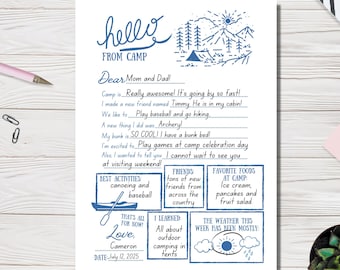 hello
FROM CAMP
Dear Mom and Dad!
Camp is Really awesome! It's going by so fast!
I made a new friend named Timmy. He is in my cabin!
We like to Play baseball and go hiking.
A new thing I did was Archery!
My bunk is SO COOL! I have a bunk bed!
I'm excited to Play games at camp celebration day
Also, I wanted to tell you I cannot wait to see you
at visiting weekend!
BEST ACTIVITIES
canoeing and
baseball
FRIENDS
tons of new
friends from
across the
country
FAVORITE FOODS
AT CAMP
Ice cream,
pancakes and
fruit salad
THAT'S ALL
FOR NOW!
Love,
Cameron
DATE: July 12, 2025
I LEARNED
All about
outdoor
camping in
tents
THE WEATHER THIS
WEEK HAS BEEN MOSTLY